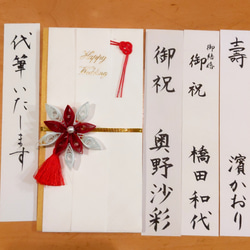 壽
濱かおり
御結婚
御祝
橋田和代
御祝
奥野沙彩
Happy
Wedding
代筆いたします